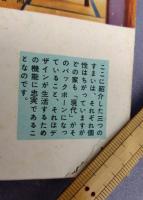 ここに紹介した三つの
すまいは、それぞれ個
性はちがっていますが
どの家も〝現代〟がそ
のバックボーンになっ
ていること、それはデ
ザインが生活するため
の機能に忠実であるこ
となのです。